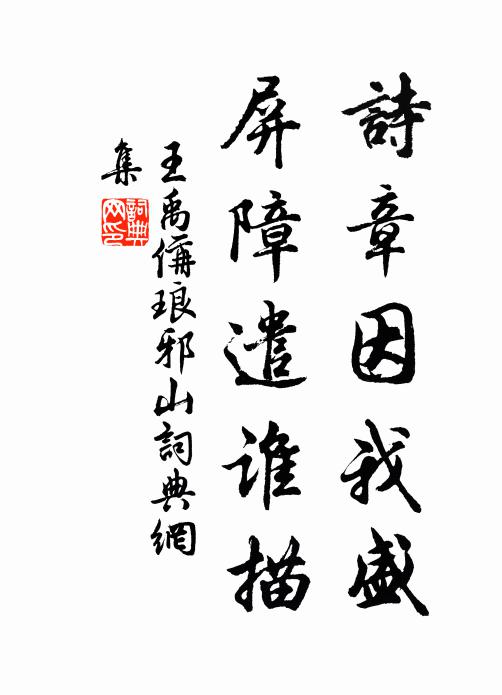 詩章因我盛
屏障遣誰描
王禹偁琅邪山詞典網
集
詞典
网印